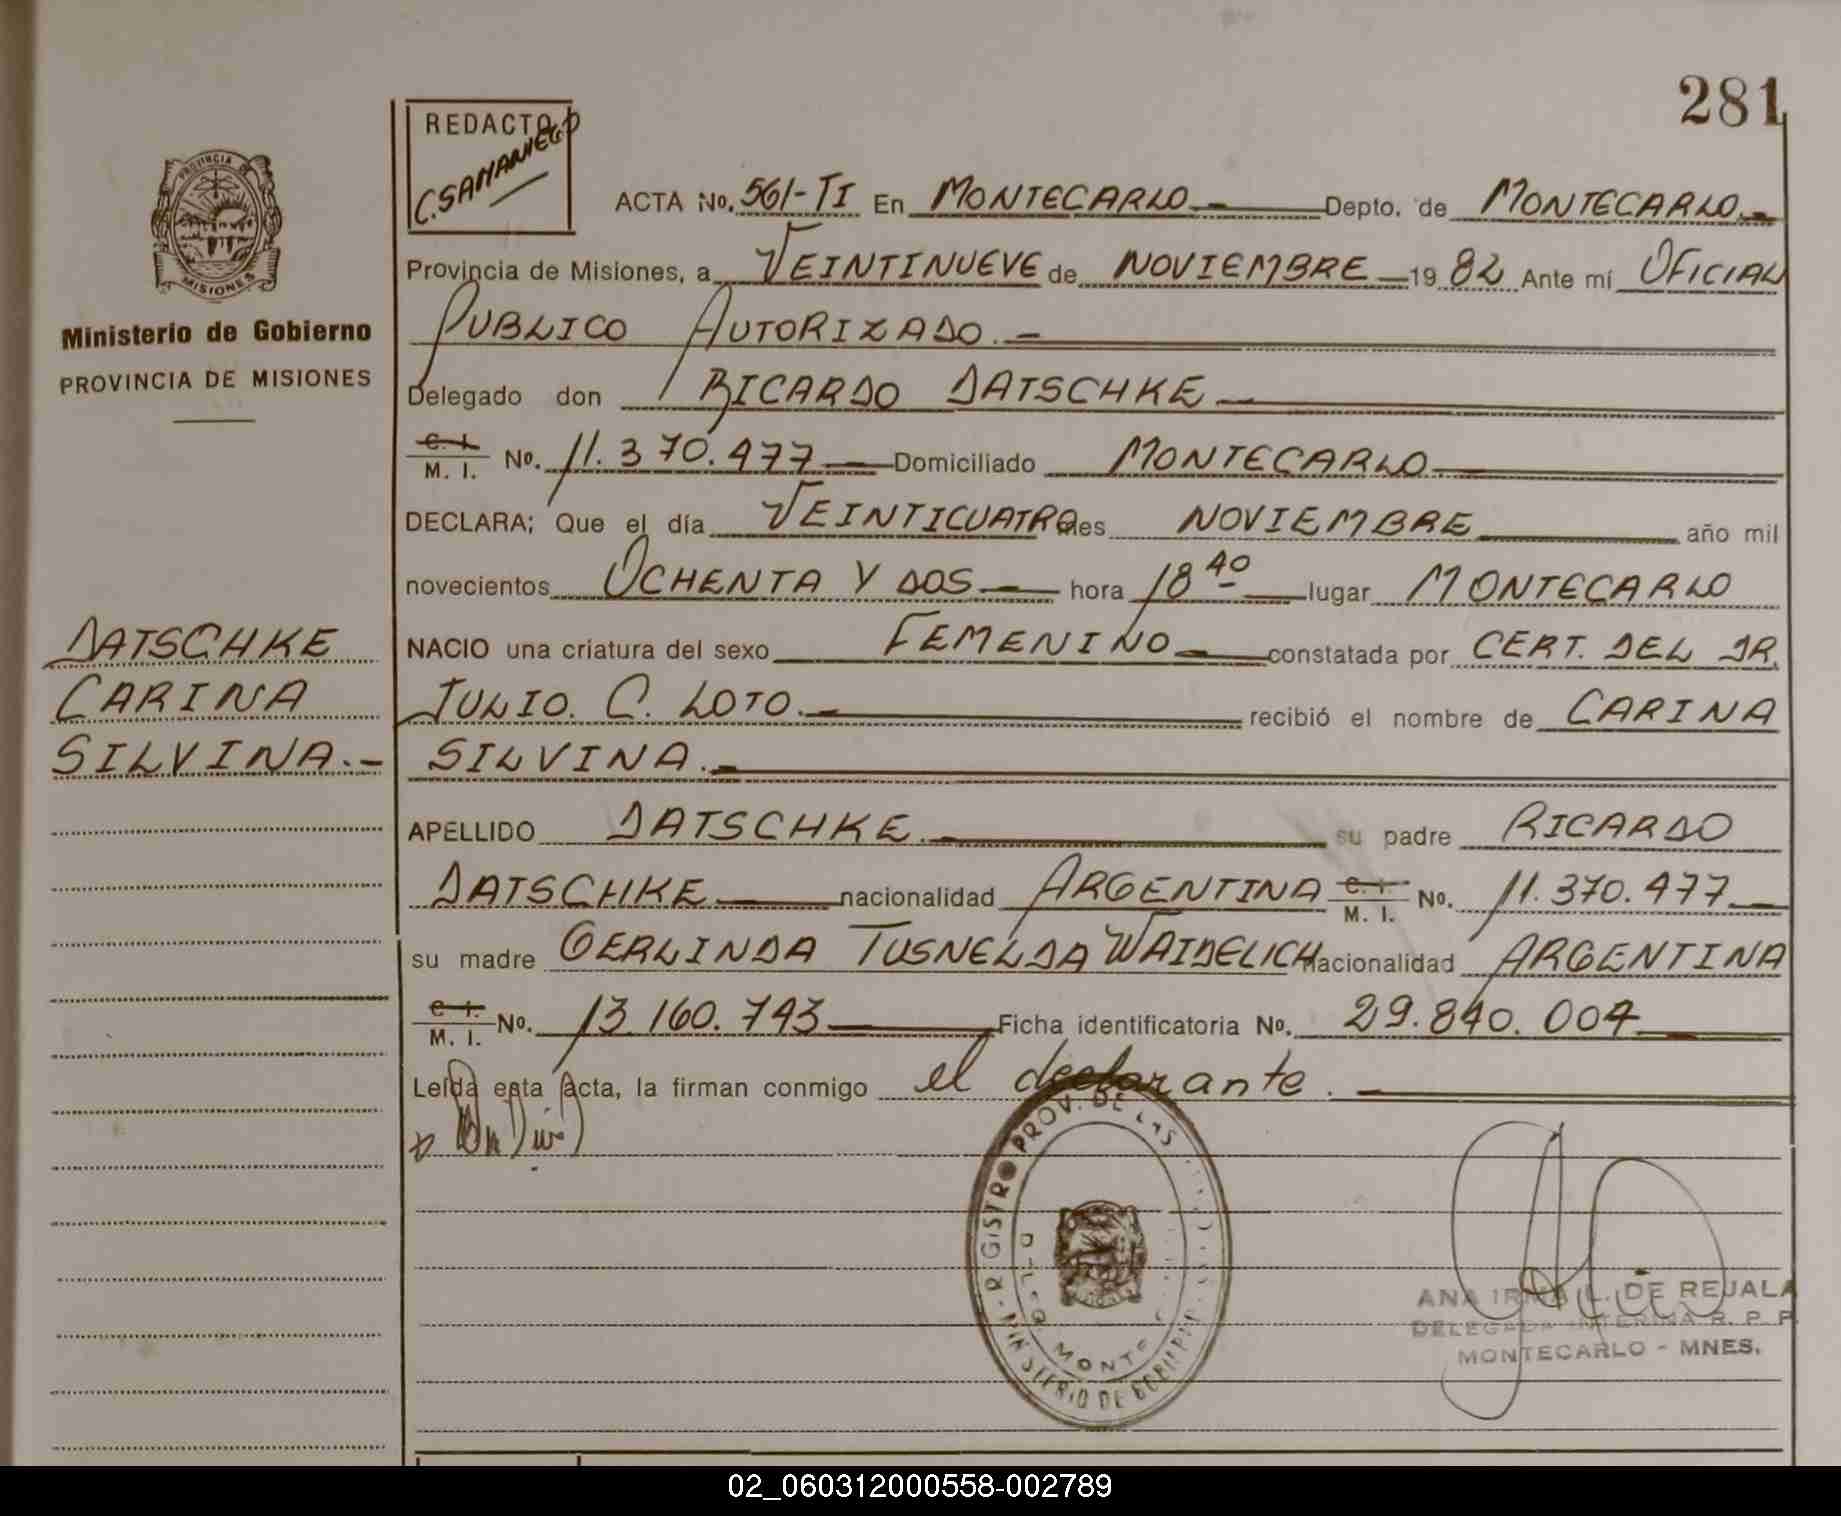 281
REDACTO
C. SAMANIEGO
PROVINCIA DE
MISIONES
Ministerio de Gobierno
PROVINCIA DE MISIONES
ACTA No. 561-TI En MONTECARLO Depto. de MONTECARLO.-
Provincia de Misiones, a VEINTINUEVE de NOVIEMBRE 1982 Ante mí OFICIAL
PUBLICO AUTORIZADO.-
Delegado don RICARDO DATSCHKE
C. I.
M. I. No. 11.370.477 Domiciliado MONTECARLO
DECLARA; Que el día VEINTICUATRO mes NOVIEMBRE año mil
novecientos OCHENTA Y DOS hora 18 40 lugar MONTECARLO
NACIO una criatura del sexo FEMENINO constatada por CERT. DEL DR.
JULIO. C. LOTO.- recibió el nombre de CARINA
SILVINA.-
APELLIDO DATSCHKE.- su padre RICARDO
DATSCHKE nacionalidad ARGENTINA C. I.
M. I. No. 11.370.477
su madre GERLINDA TUSNELDA WAIDELICH nacionalidad ARGENTINA
C. I.
M. I. No. 13.160.743 Ficha identificatoria No. 29.840.004
Leída esta acta, la firman conmigo el declarante.
DATSCHKE
CARINA
SILVINA.-
REGISTRO PROV. DE LAS
DELEG. MONTE
MINISTERIO DE GOBIERNO
ANA IRMA L. DE REJALA
DELEGADA INTERINA R. P. P.
MONTECARLO - MNES.
02_060312000558-002789